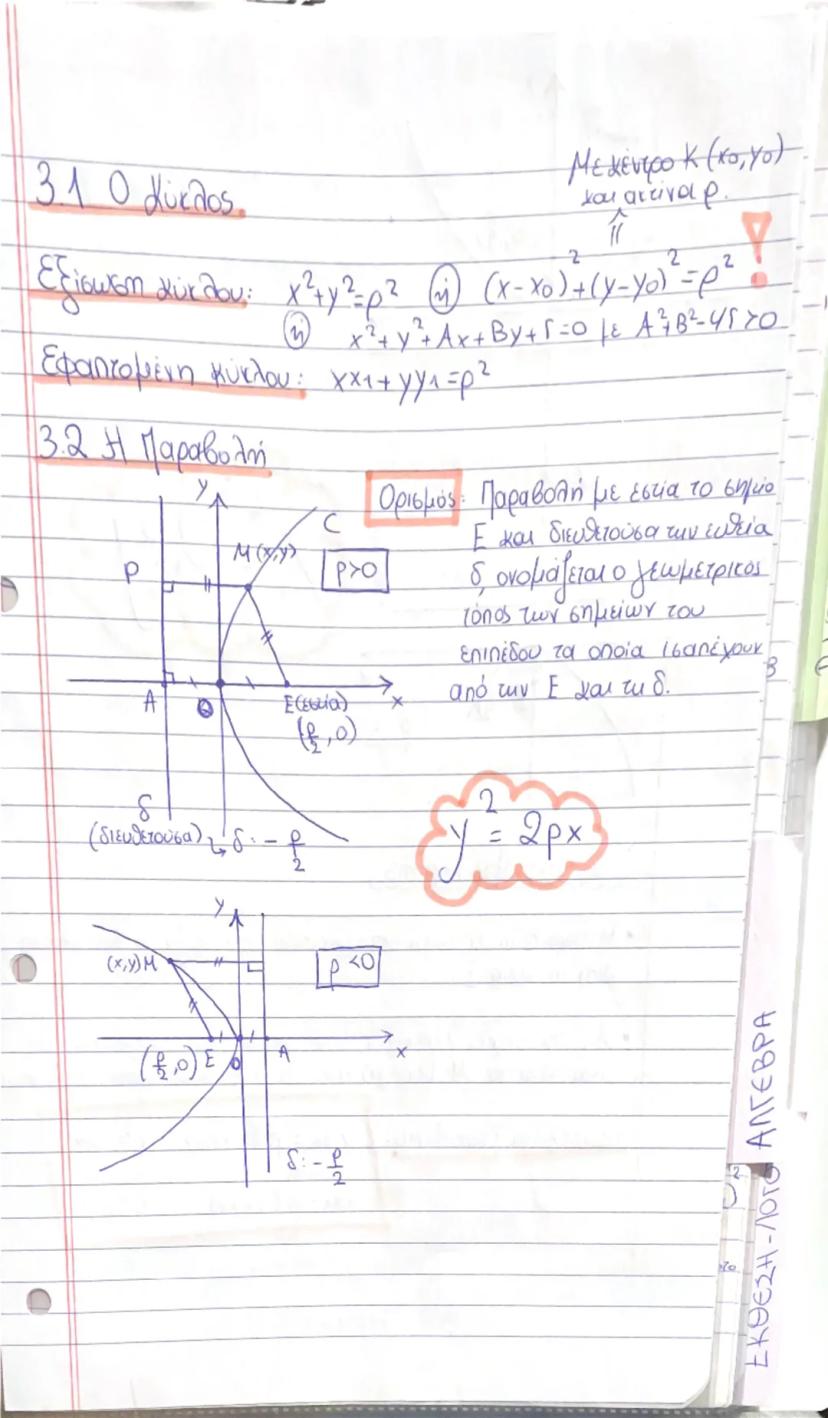 Με κέντρο Κ(x₀,y₀)
και ακτίνα ρ.
3.1 Ο κύκλος.
Εξίσωση κύκλου: x²+y²=ρ² (ή) (x-x₀)²+(y-y₀)²=ρ² !
(ή) x²+y²+Ax+By+Γ=0 με A²+B²-4Γ>0
Εφαπτομένη κύκλου: xx₁+yy₁=ρ²
3.2 Η Παραβολή
Ορισμός: Παραβολή με εστία το σημείο
Ε και διευθετούσα την ευθεία
δ, ονομάζεται ο γεωμετρικός
τόπος των σημείων του
επιπέδου τα οποία ισαπέχουν
από την Ε και τη δ.
y
C
M(x,y)
P
p>0
A
O
E(εστία)
x
(p/2, 0)
δ
(διευθετούσα) δ: -p/2
y² = 2px
y
(x,y)M
p<0
(p/2, 0) E
O
A
x
δ: -p/2
B
ΑΛΓΕΒΡΑ
ΕΚΘΕΣΗ-ΛΟΓΟ
)²